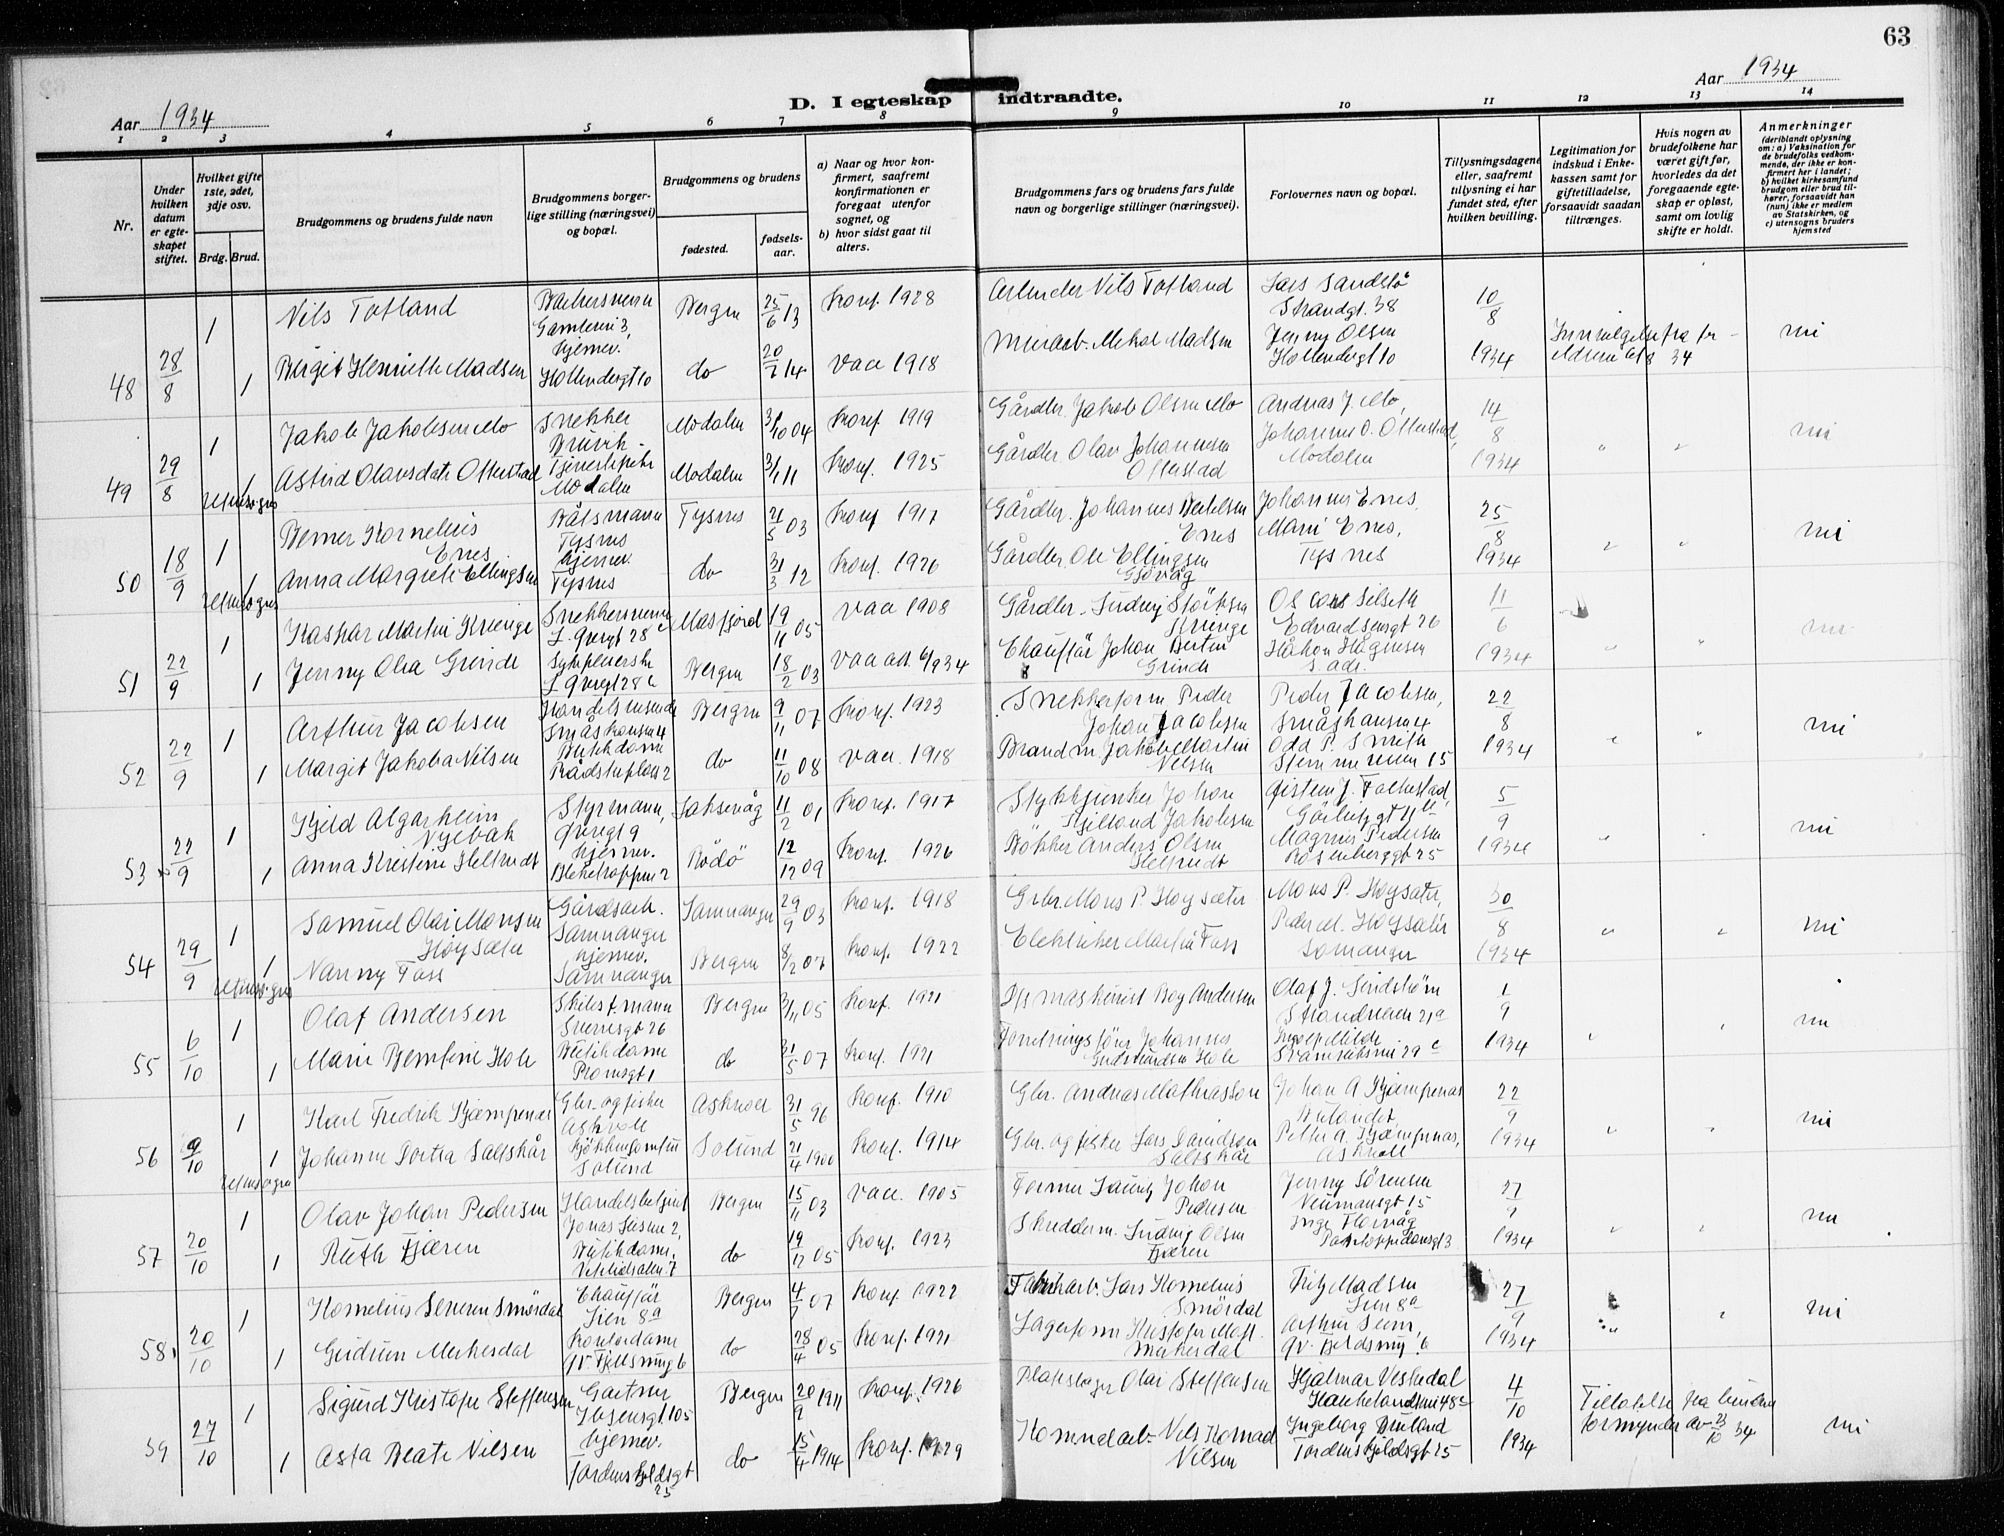 63
Aar 1934
D. I egteskap indtraadte.
Aar 1934
1 2 3 4 5 6 7 8 9 10 11 12 13 14
Nr.
Under hvilken datum er egteskapet stiftet.
Hvilket gifte 1ste, 2det, 3dje osv.
Brdg. Brud.
Brudgommens og brudens fulde navn
Brudgommens borgerlige stilling (næringsvei) og bopæl.
Brudgommens og brudens
fødested.
fødselsaar.
a) Naar og hvor konfirmert, saafremt konfirmationen er foregaat utenfor sognet, og
b) hvor sidst gaat til alters.
Brudgommens fars og brudens fars fulde navn og borgerlige stillinger (næringsvei).
Forlovernes navn og bopæl.
Tillysningsdagene eller, saafremt tillysning ei har fundet sted, efter hvilken bevilling.
Legitimation for indskud i Enkekassen samt for giftetilladelse, forsaavidt saadan tiltrænges.
Hvis nogen av brudefolkene har været gift før, hvorledes da det foregaaende egteskap er opløst, samt om lovlig skifte er holdt.
Anmerkninger
(deriblandt oplysning om: a) Vaksination for de brudefolks vedkommende, der ikke er konfirmert her i landet; b) hvilket kirkesamfund brudgom eller brud tilhører, forsaavidt han (hun) ikke er medlem av Statskirken, og c) utensogns bruders hjemsted
48 28/8 1 Nils Totland Gamlevei 3, Bergen 25/6 13 Konf. 1928 Arbeider Nils Totland Lars Sandstø Strandgt. 38 10/8
1 Birgit Henriette Madsen hjemev. Hollendergt 10 do 20/7 14 vacc 1918 Murarb. Mikal Madsen Jenny Olsen Hollendergt 10 1934 nei
49 29/8 1 Jakob Jakobsen Mo Snekker Bruvik Modalen 3/10 04 Konf 1919 Gårdbr. Jakob Olsen Mo Andreas J. Mo, 14/8
1 Astrid Olavsdatter Otterstad Modalen Modalen 3/1 11 Konf. 1925 Gårdbr. Olav Johannesen Otterstad Johannes O. Otterstad, Modalen 1934 " " nei
utensognes
50 18/9 1 Berner Kornelius Enes Båtsmann Tysnes Tysnes 21/5 03 Konf 1917 Gårdbr. Johannes Bertelsen Enes Johannes Enes, 25/8
1 Anna Margrete Ellingsen hjemev. Tysnes do 31/3 12 Konf. 1926 Gårdbr. Ole Ellingsen Gjøvåg Marie Enes, Tysnes 1934 " " nei
utensognes
51 22/9 1 Kaspar Martin Kvinge Snekkersvenn L. Øvregt 28c Masfjord 19/11 05 vacc 1908 Gårdbr. Ludvig Kvinge Edvardsensgt 26 11/6
1 Jenny Olea Grinde L. Øvregt 28c Bergen 18/2 03 vacc att 6/9 34 Chauffør Johan Bertin Grinde Håkon Hågensen s. adr. 1934 " " nei
52 22/9 1 Arthur Jacobsen Småskansen 4 Bergen 9/11 07 Konf. 1923 Snekkerform Peder Johan Jacobsen Peder Jacobsen, Småskansen 4 22/8
1 Margit Jakoba Nilsen Butikdame Rådstuplass 2 do 11/10 08 vacc. 1918 Brandm Jakob Martin Nilsen Odd P. Smith Stemmeveien 15 1934 " " nei
53 22/9 1 Kjeld Algarheim Nyebak Styrmann, Øvregt 9 Laksevåg 11/2 01 Konf. 1917 Stykkjunker Johan Jakobsen Øistein J. Falkestad, 5/9
1 Anna Kristine Heltredt hjemev. Bleketroppen 2 Rödö 12/12 09 Konf. 1926 Bökker Anders Olsen Heltredt Magnus Pedersen Rosenberggt 25 1934 " " nei
54 29/9 1 Samuel Olai Monsen Høysæter Gårdsarb. Samnanger Samnanger 29/9 03 Konf. 1918 Grbr. Mons P. Høysæter Mons P. Høysæter, 30/8
1 Nanny Foss hjemev. Samnanger Bergen 8/2 07 Konf. 1922 Elektriker Martin Foss Peder M. Høysæter Samnanger 1934 " " nei
utensognes
55 6/10 1 Olaf Andersen Sverresgt 26 Bergen 3/11 05 Konf. 1921 Maskinist Boy Andersen Olaf J. Strandveien 21a 1/9
1 Marie Bentine Hole Butikdame Promsgt 1 do 31/5 07 Konf. 1921 Forretningsfører Johannes Gudmundsen Hole 1934 " " nei
56 9/10 1 Karl Fredrik Kjæmpenæs Gbr. og fisker Askvoll Askvoll 31/5 96 Konf. 1910 Gbr. Andreas Mathiasson Johan A. Kjæmpenæs 22/9
1 Johanne Dortea Saltskår Solund Solund 21/4 1900 Konf. 1914 Gbr. og fisker Lars Davidson Saltskår Petter A. Kjæmpenæs, Askvoll 1934 " " nei
utensogns
57 20/10 1 Olav Johan Pedersen Handelsbetjent Jonas Liesen 2, Bergen 15/11 03 vacc. 1905 Former Lauritz Johan Pedersen Jenny Sørensen Neumansgt 15 27/9
1 Ruth Fjæren Butikdame. do 19/12 05 Konf. 1923 Skredderm. Ludvig Olsen Fjæren Inge Florvåg 1934 " " nei
58 20/10 1 Kornelius Severen Smørdal Chauffør Lien 8a Bergen 4/7 07 Konf. 1922 Fabrikarb. Lars Kornelius Smørdal Fritz Madsen Lien 8a 27/9
1 Gudrun Merkesdal Kontordame Øv. Fjellsmug 6 do 28/4 05 Konf. 1921 Lagerform Kristofer Matt. Merkesdal Arthur Seim, Øv. Fjeldsmug 6 1934 " " nei
59 27/10 1 Sigurd Kristofer Steffensen Gartner Ibsensgt. 105 Bergen 20/9 1911 Konf. 1926 Platesager Olai Steffensen Hjalmar Veskedal Haukelandsvei 48c 4/10 Tillatelse fra bruden
1 Asta Beate Nilsen hjemev. Tordenskjoldsgt 25 do 15/4 1914 Konf. 1929 Kommunearb. Nils Konrad Nilsen Ingeborg Bruland Tordenskjoldsgt 25 1934 formynder av 23/10 34 nei